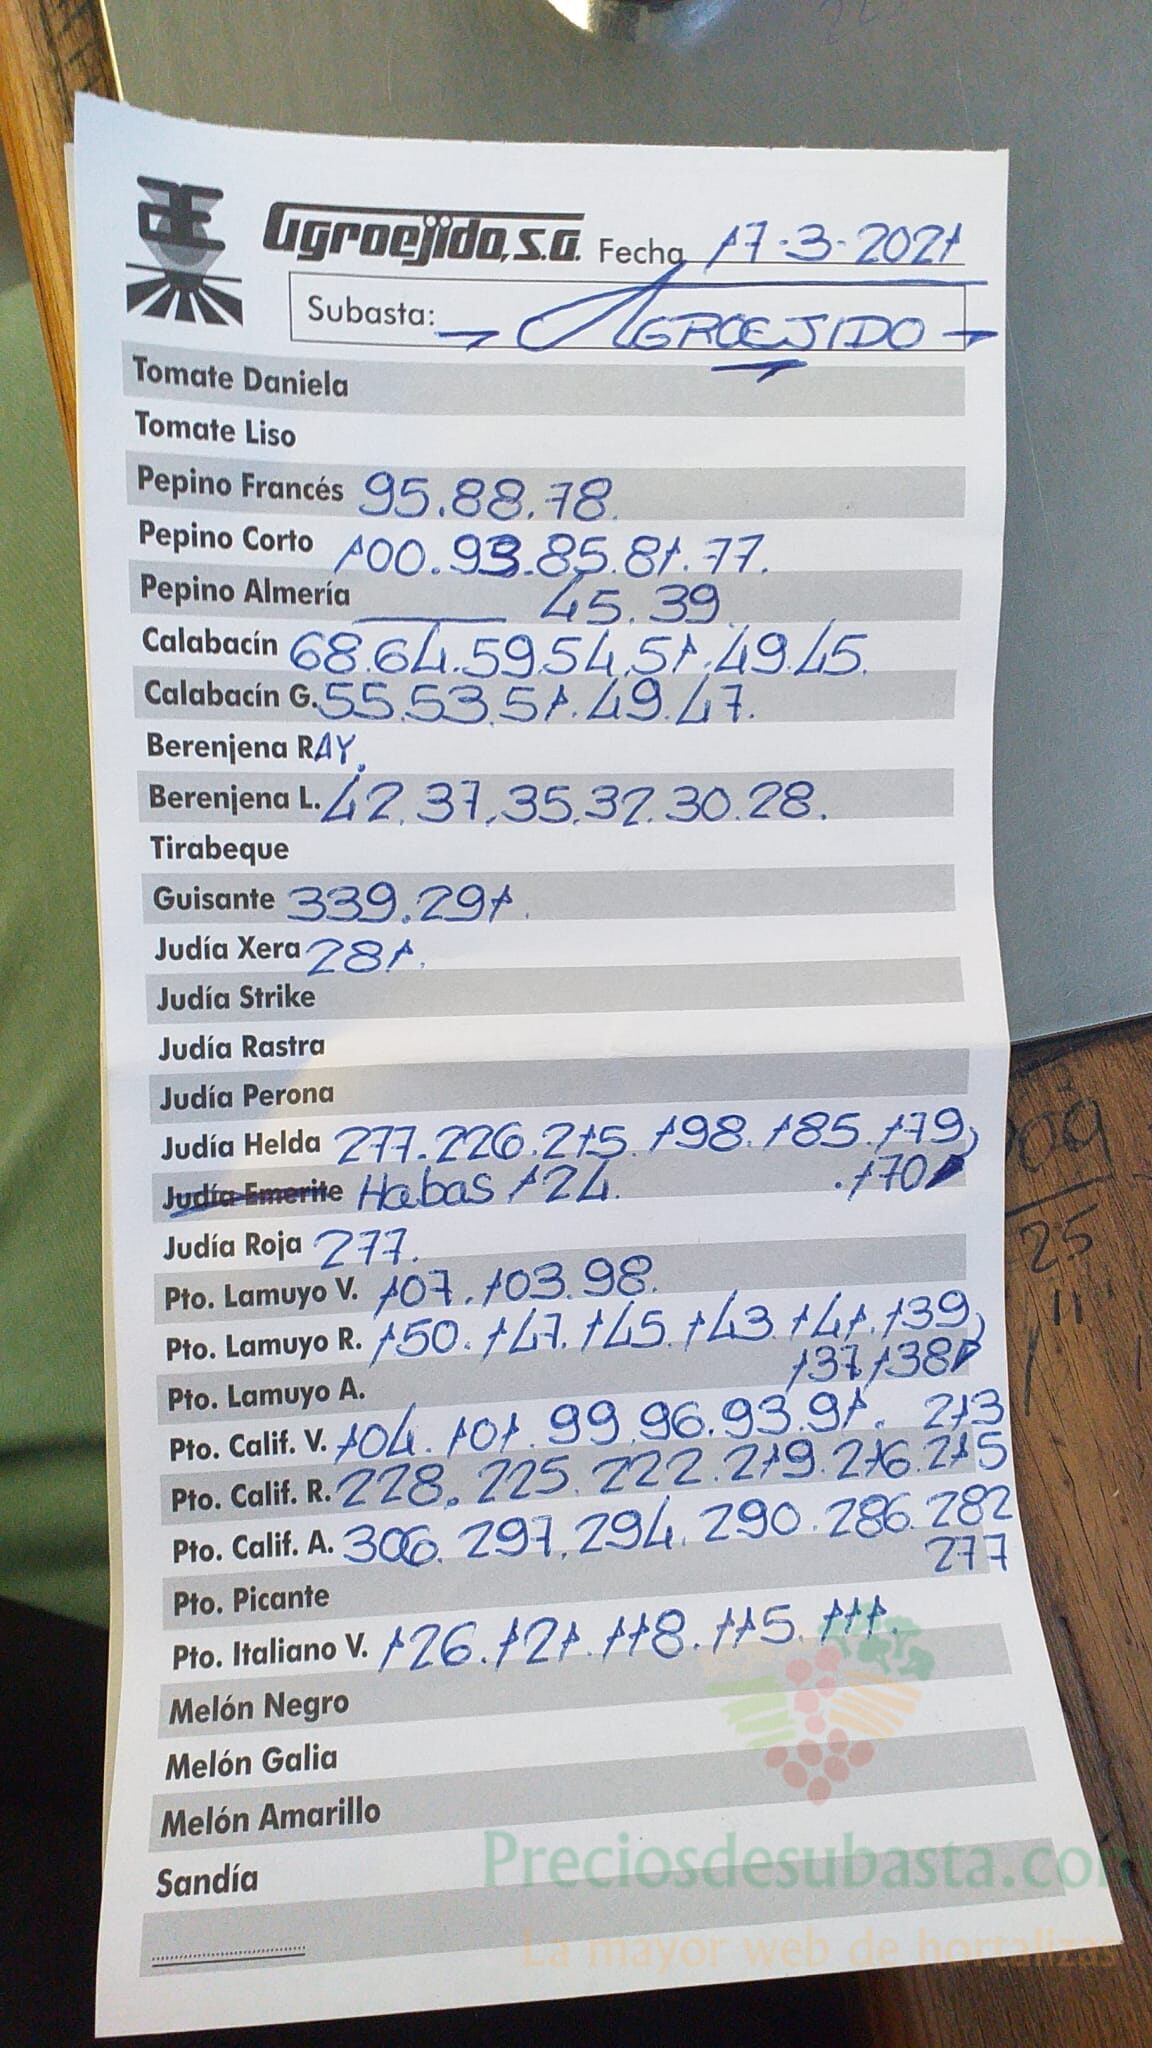 Agroejido, S.A. Fecha 17-3-2021
Subasta: → AGROEJIDO →
Tomate Daniela
Tomate Liso
Pepino Francés 95.88.78.
Pepino Corto 100.93.85.81.77.
Pepino Almería 45.39
Calabacín 68.64.59.54.51.49.45.
Calabacín G. 55.53.51.49.47.
Berenjena RAY.
Berenjena L. 42.37.35.32.30.28.
Tirabeque
Guisante 339.291.
Judía Xera 281.
Judía Strike
Judía Rastra
Judía Perona
Judía Helda 277.226.215.198.185.179
.170
Judía Emerite Habas 124.
Judía Roja 277.
Pto. Lamuyo V. 107.103.98.
Pto. Lamuyo R. 150.147.145.143.141.139
137.138
Pto. Lamuyo A.
Pto. Calif. V. 104.101.99.96.93.91.
213
Pto. Calif. R. 228.225.222.219.216.215
Pto. Calif. A. 306.297.294.290.286.282
277
Pto. Picante
Pto. Italiano V. 126.121.118.115.111.
Melón Negro
Melón Galia
Melón Amarillo
Sandía
Preciosdesubasta.com
La mayor web de hortalizas
25
11